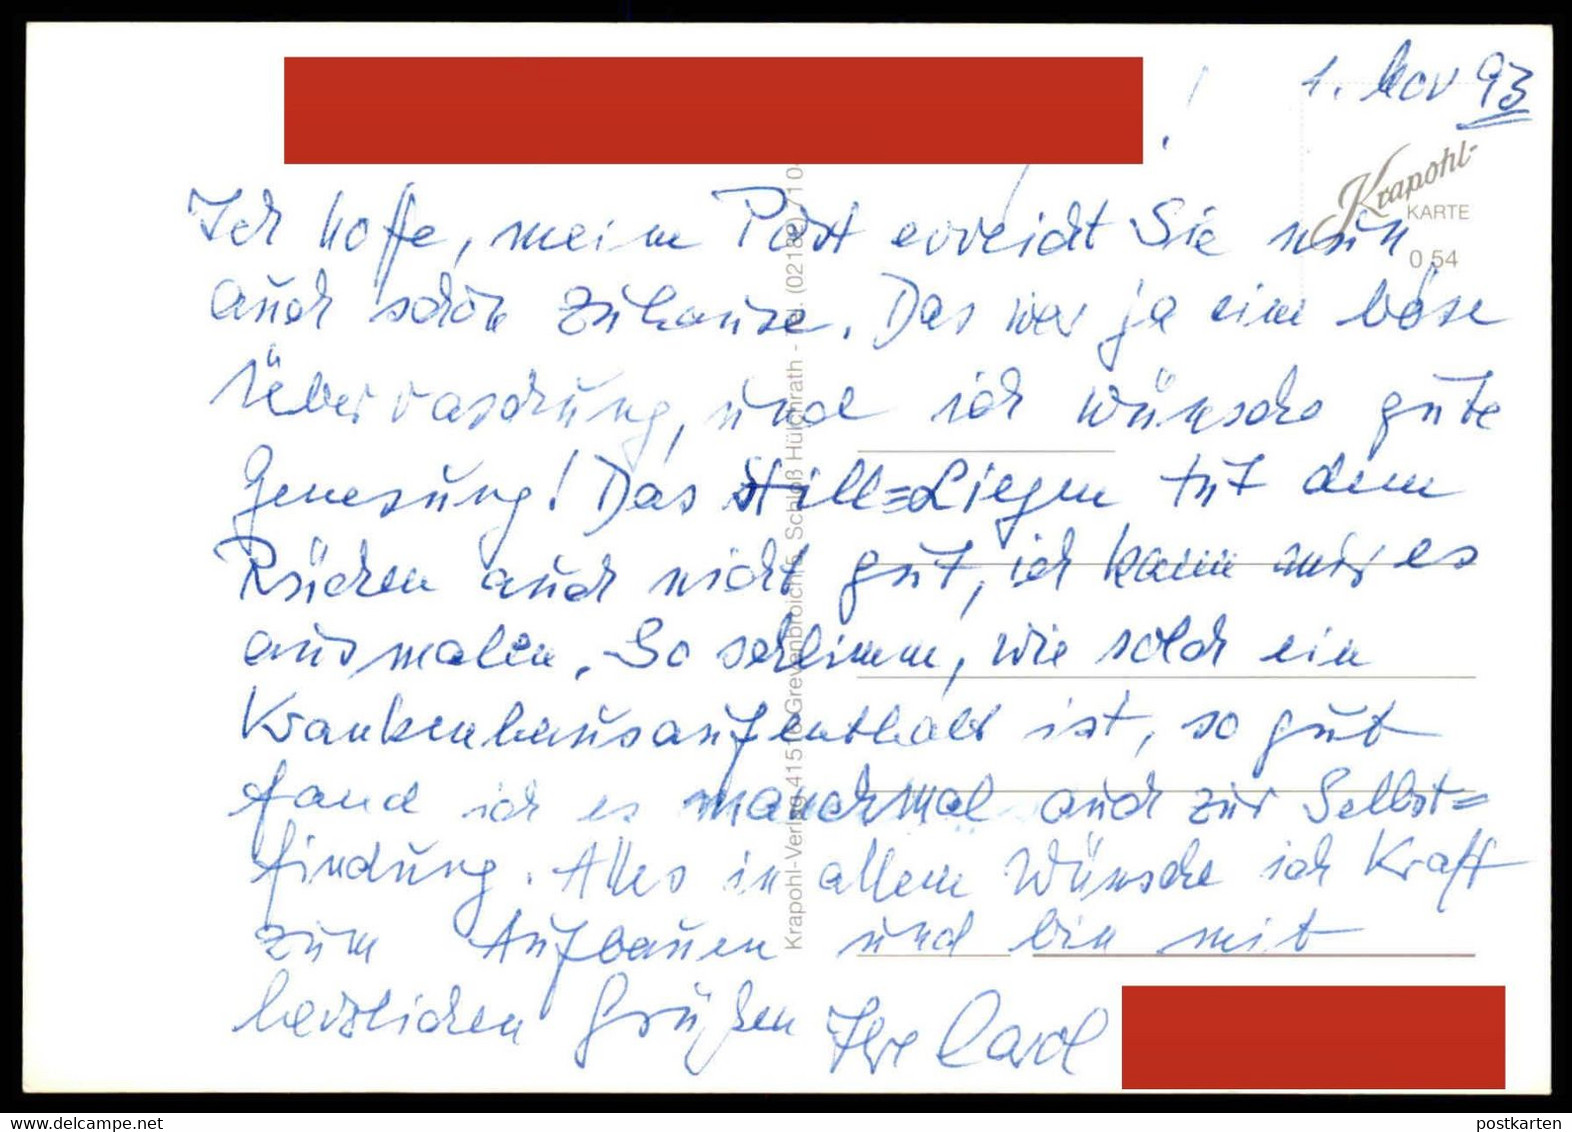 1. Nov 93
!
Ich hoffe, meine Post erreicht Sie nun
auch schon zuhause. Das war ja eine böse
Überraschung, und ich wünsche gute
Genesung! Das Still=Liegen tut dem
Rücken auch nicht gut, ich kann mir es
ausmalen. So schlimm, wie solch ein
Krankenhausaufenthalt ist, so gut
fand ich es manchmal auch zur Selbst=
findung. Alles in allem Wünsche ich Kraft
zum Aufbauen und bin mit
herzlichen Grüßen Ihre Carol
Krapohl-
KARTE
0 54
Krapohl-Verlag 41516 Grevenbroich 5, Schloß Hülchrath - Tel. (02182)
postkarten